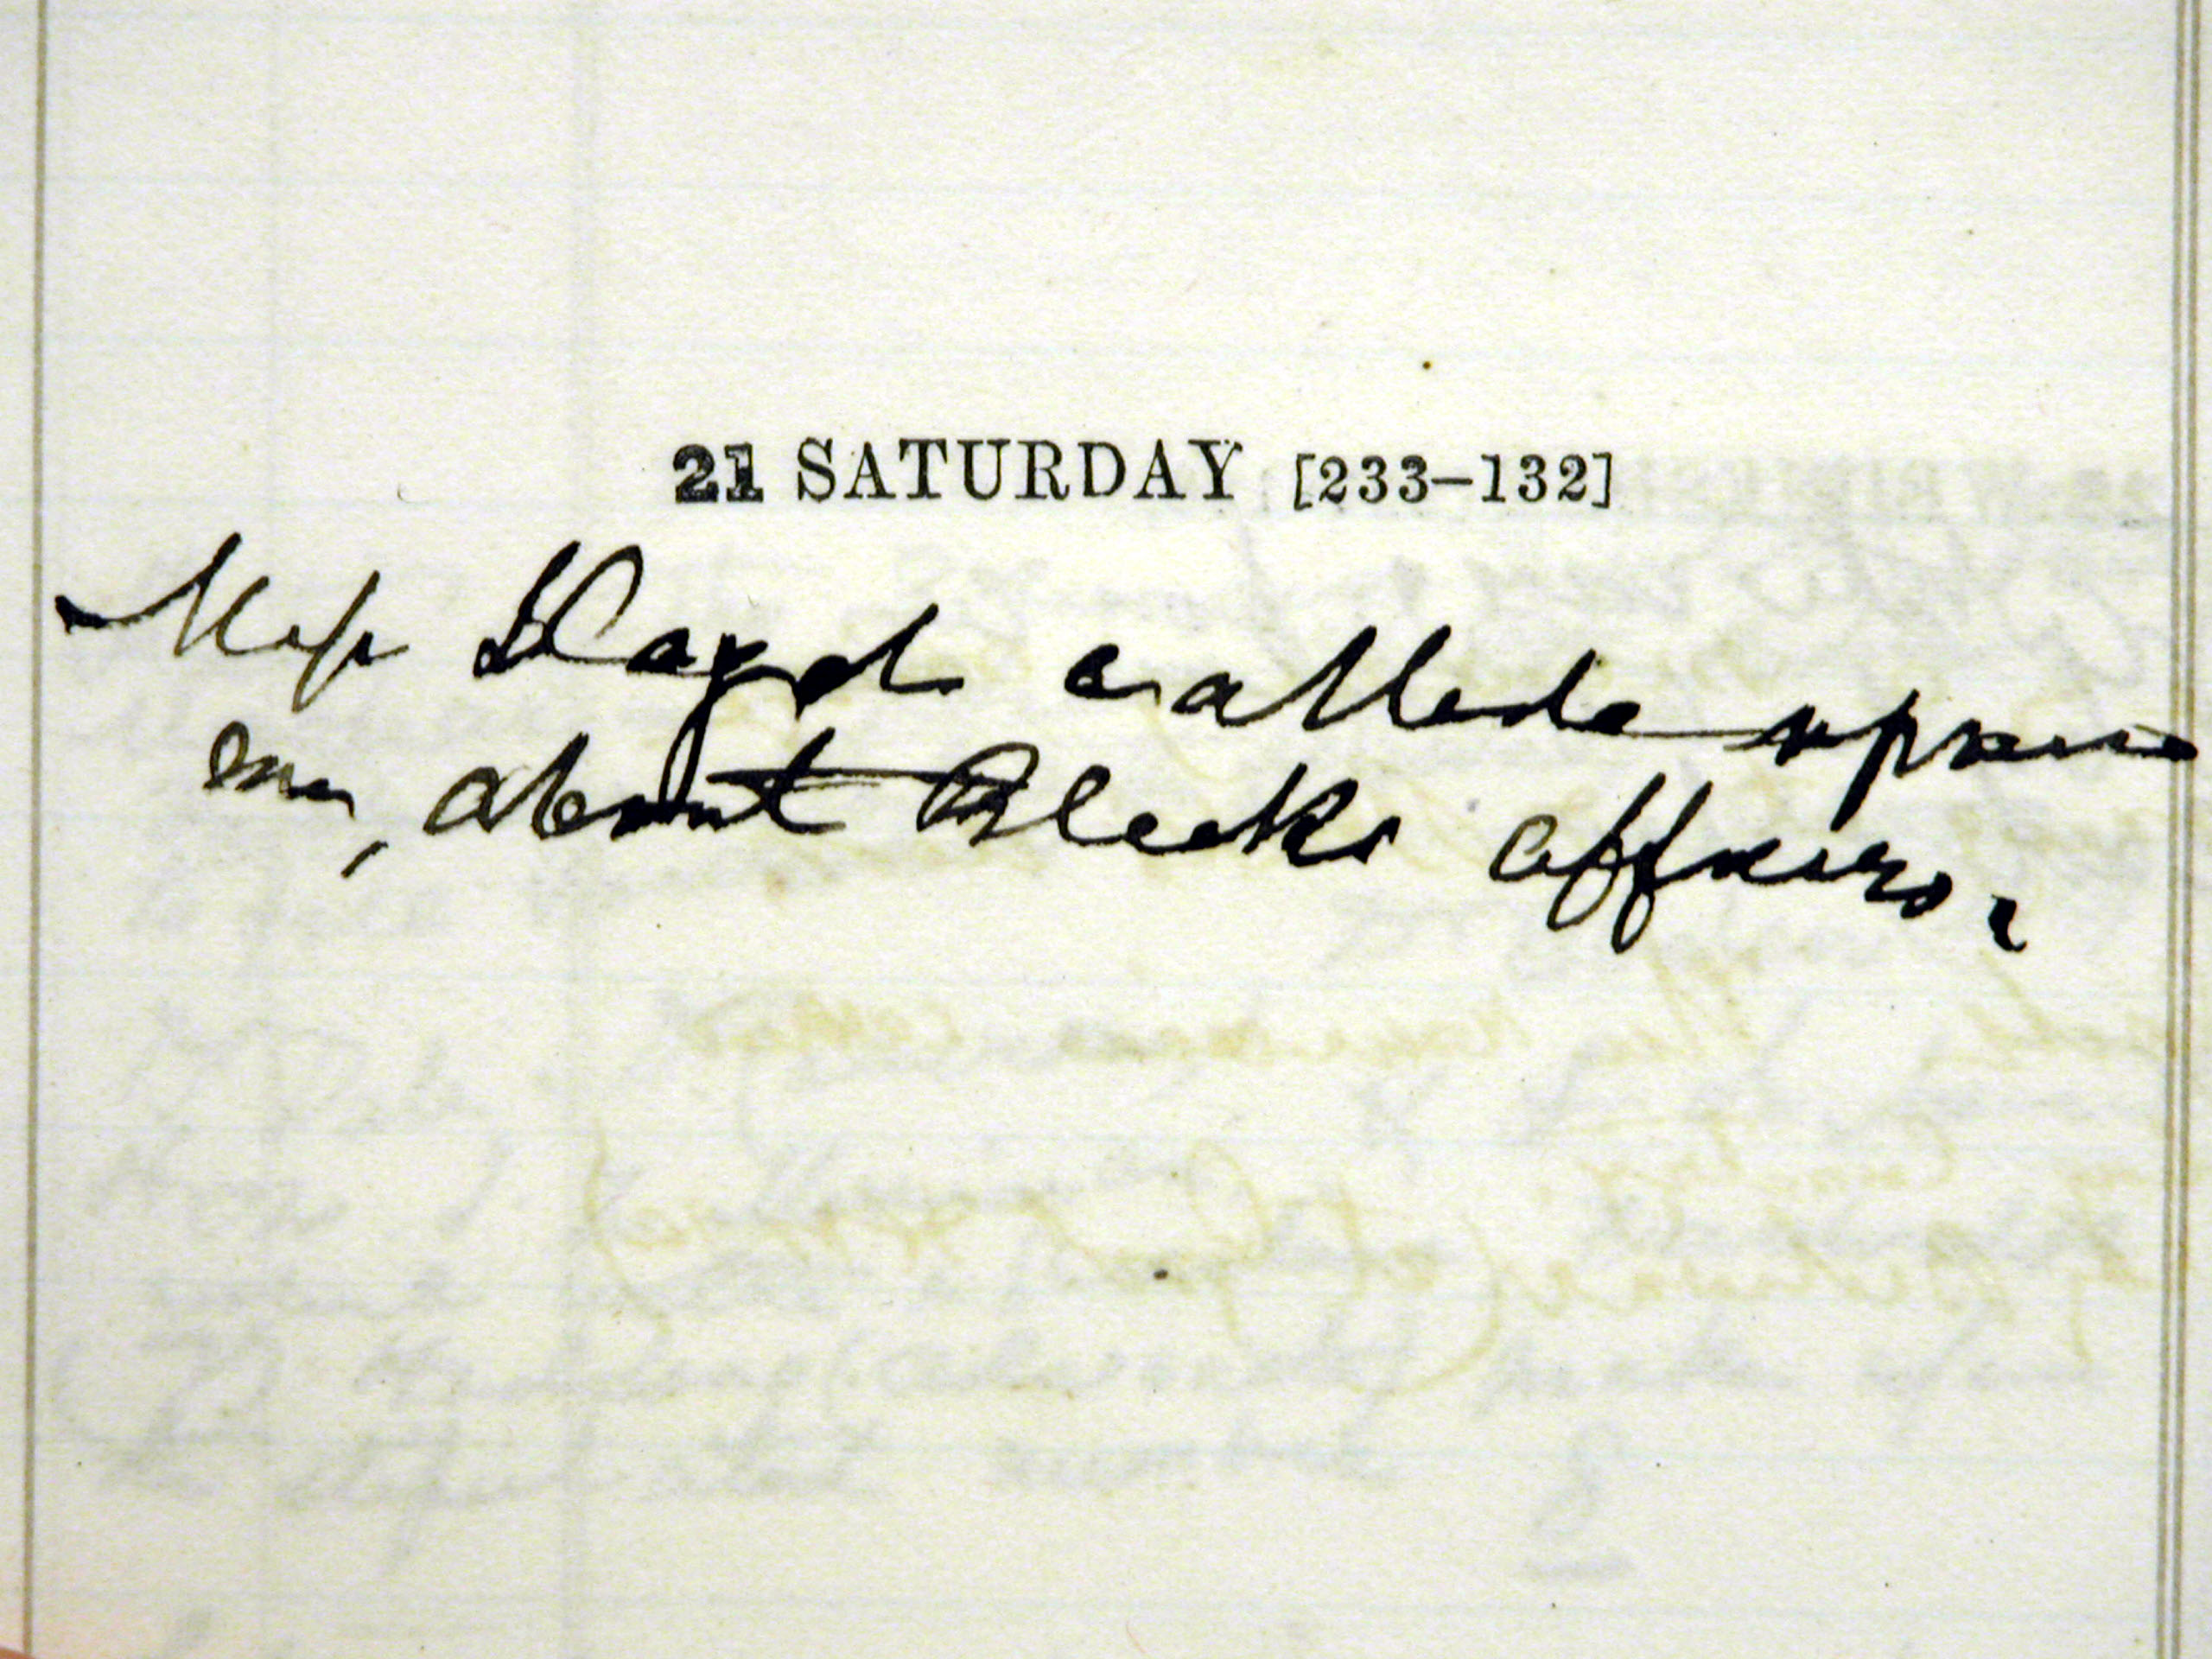 21 SATURDAY [233–132]
Miss Lloyd called upon
me, about Bleeks affairs.